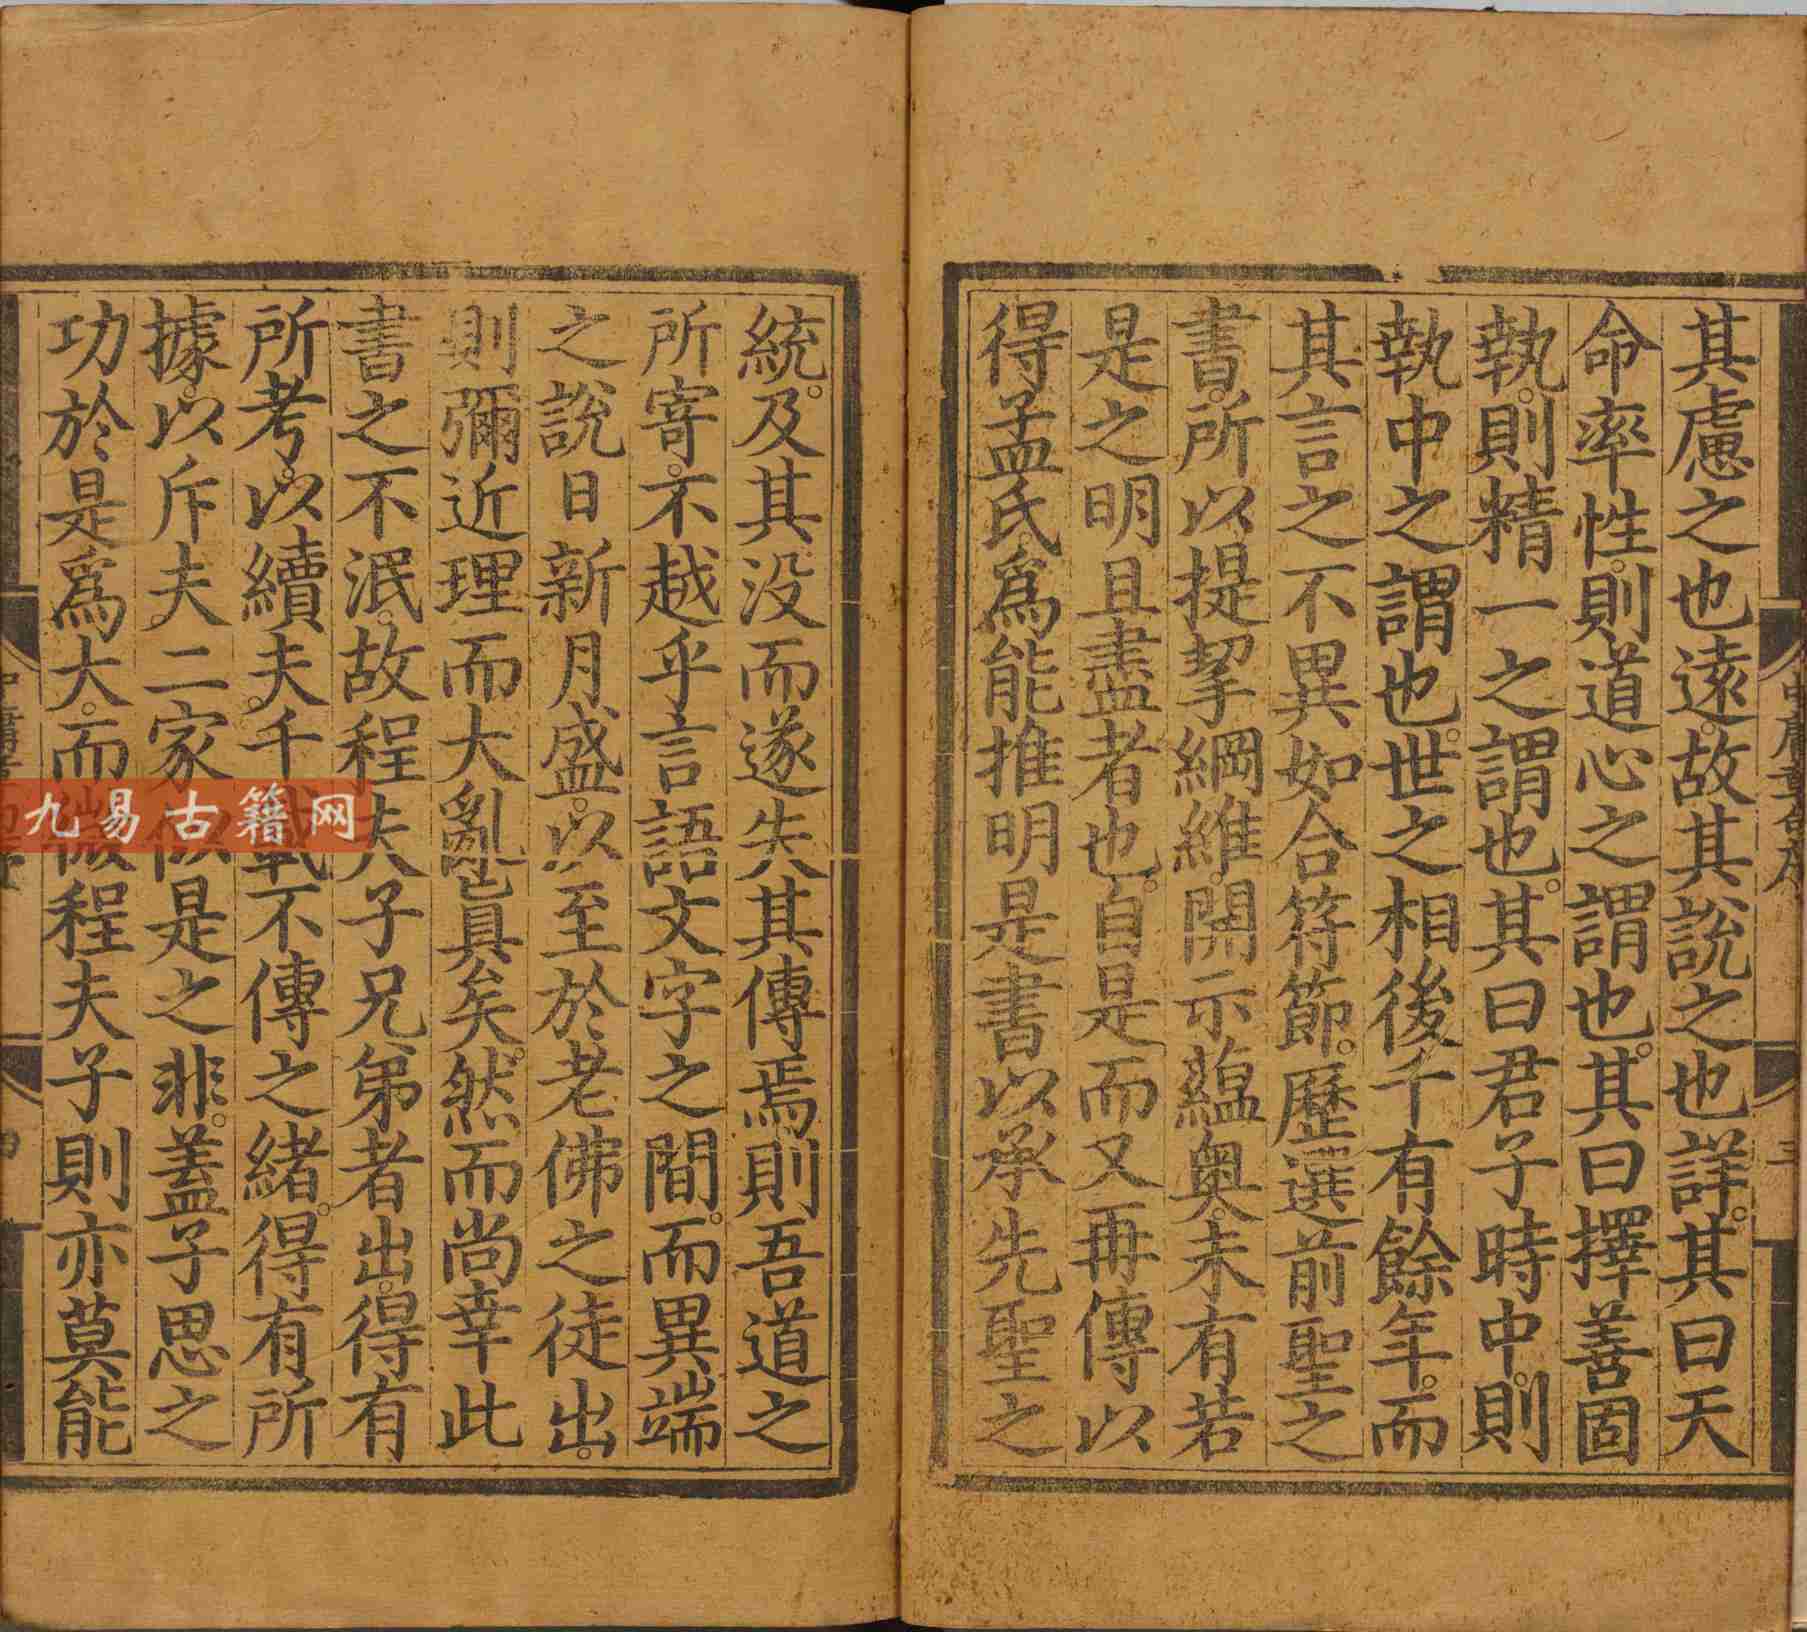 其慮之也遠。故其說之也詳。其曰天
命率性。則道心之謂也。其曰擇善固
執。則精一之謂也。其曰君子時中。則
執中之謂也。世之相後千有餘年。而
其言之不異如合符節。歷選前聖之
書。所以提挈綱維。開示蘊奥。未有若
是之明且盡者也。自是而又再傳以
得孟氏。爲能推明是書以承先聖之
統。及其没而遂失其傳焉則吾道之
所寄。不越乎言語文字之間。而異端
之說日新月盛。以至於老佛之徒出。
則彌近理而大亂眞矣。然而尚幸此
書之不泯。故程夫子兄弟者出。得有
所考。以續夫。千載不傳之緒。得有所
據。以斥夫。二家似是之非。蓋子思之
功於是爲大。而微程夫子則亦莫能
中庸章句序
三
九易古籍网